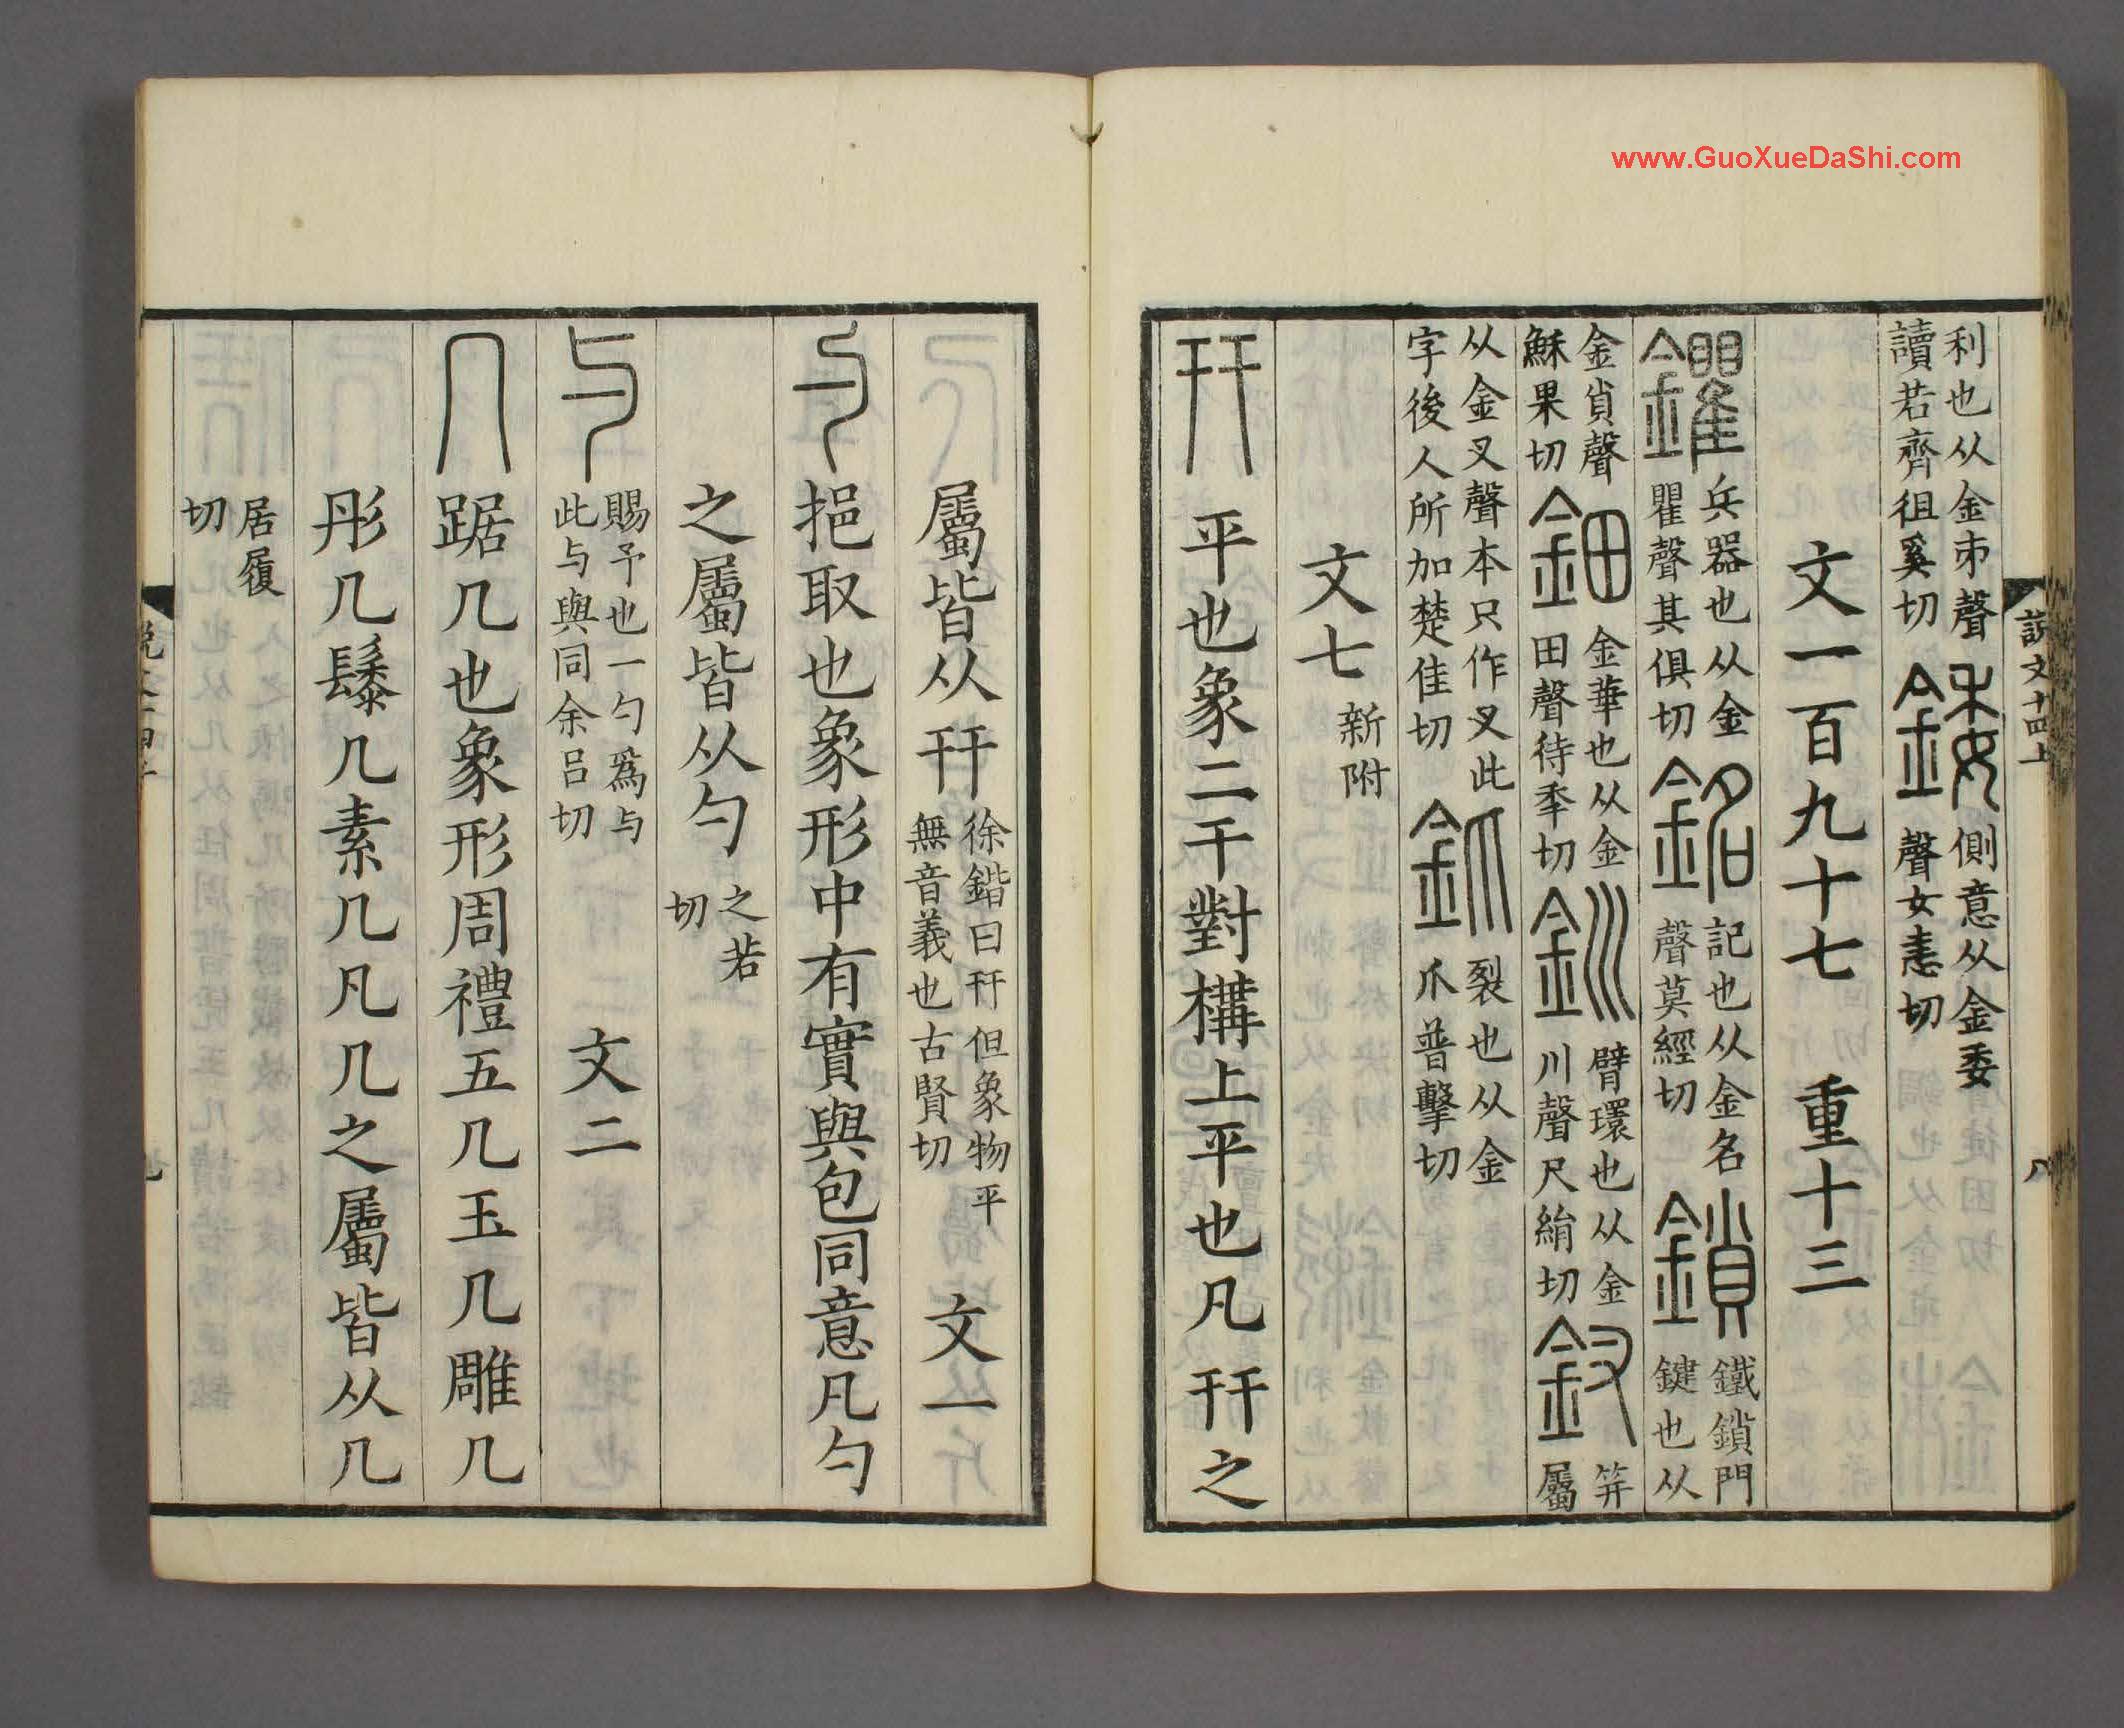 www.GuoXueDaShi.com
說文十四上 八
利也从金𠂔聲
讀若齊徂奚切 錗 側意从金委
聲女恚切
文一百九十七 重十三
鑺 兵器也从金
瞿聲其俱切 銘 記也从金名
聲莫經切 鎖 鐵鎖門
鍵也从
金𧴪聲
穌果切 鈿 金華也从金
田聲待秊切 釧 臂環也从金
川聲尺絹切 釵 笄屬
从金叉聲本只作叉此
字後人所加楚佳切 釽 裂也从金
爪普擊切
文七 新附
幵 平也象二干對構上平也凡幵之
屬皆从幵 徐鍇曰幵但象物平
無音義也古賢切 文一
勺 挹取也象形中有實與包同意凡勺
之屬皆从勺 之若
切
与 賜予也一勺爲与
此与與同余呂切 文二
几 踞几也象形周禮五几玉几雕几
彤几鬆几素几凡几之屬皆从几
居履
切